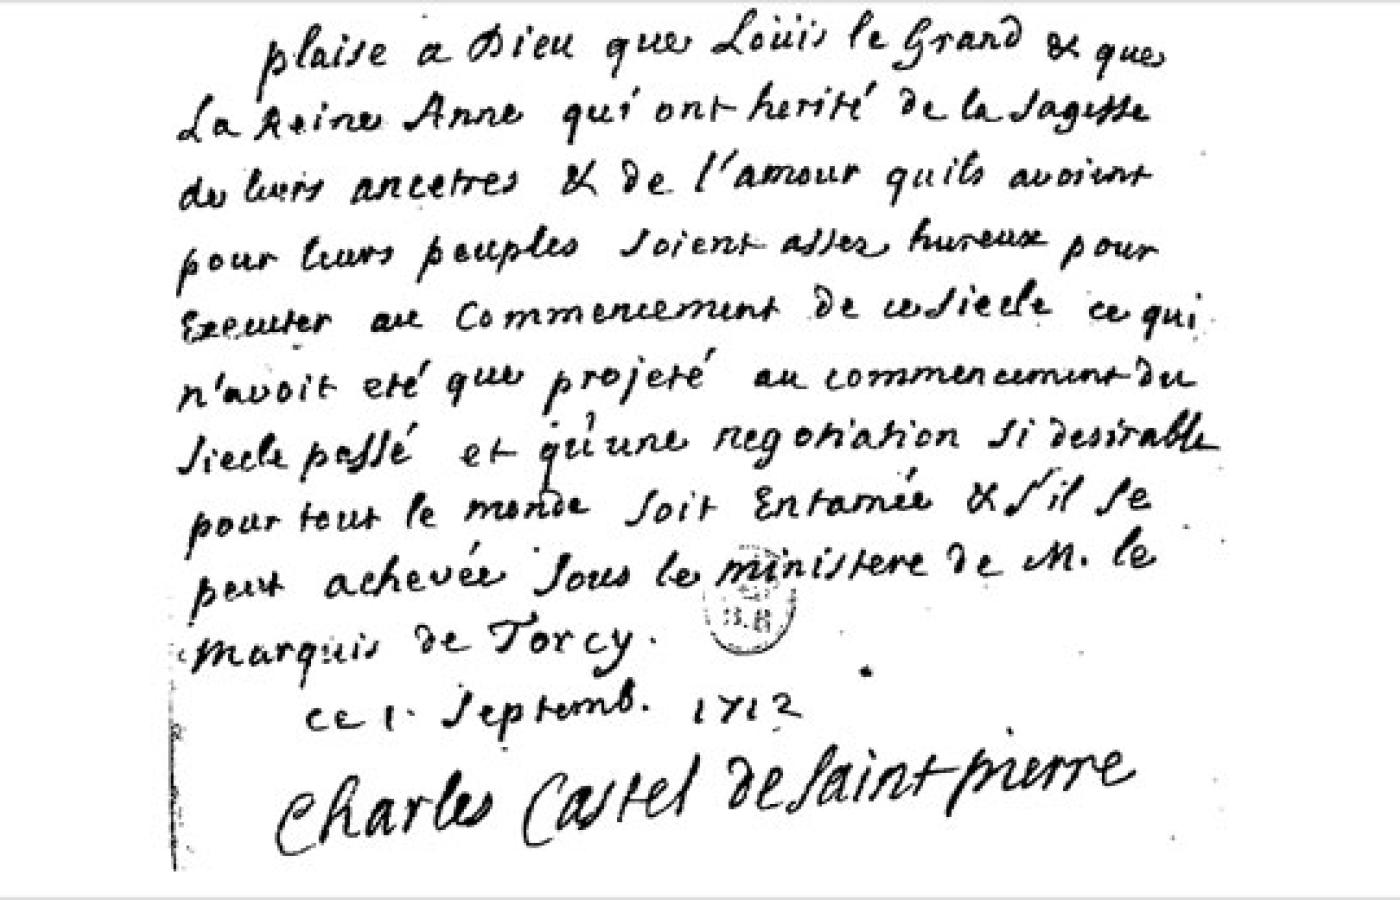 plaise a Dieu que Loüis le Grand & que
La Reine Anne qui ont herité de la sagesse
de leurs ancetres & de l'amour quils avoient
pour leurs peuples soient assez hureux pour
Executer au Commencement de ce siecle ce qui
n'avoit eté que projeté au commencement du
siecle passé et qu'une negotiation si desirable
pour tout le monde soit Entamée & s'il se
peut achevée sous le ministere de M. le
Marquis de Torcy.
ce 1. septemb. 1712
Charles Castel de saint pierre